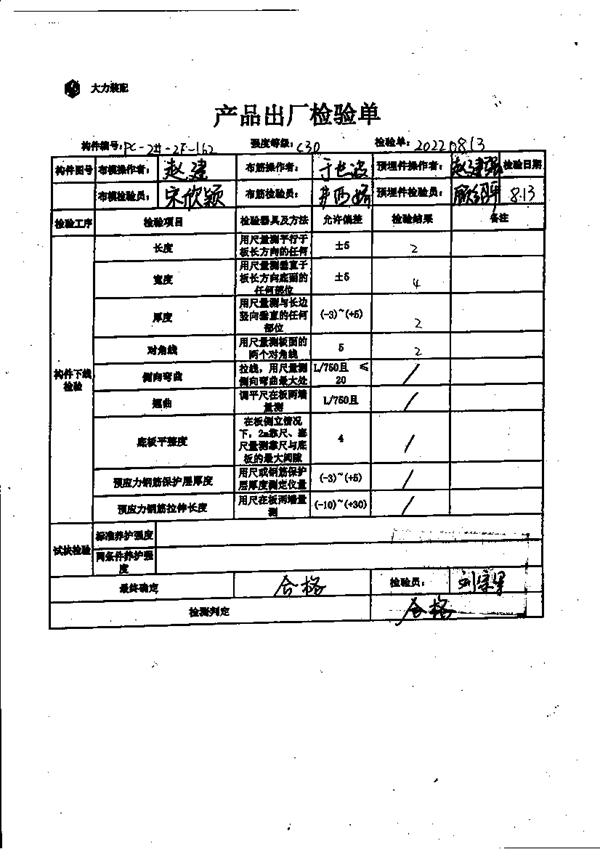 大力装配
产品出厂检验单
构件编号: PC-2#-2F-162 强度等级: C30 检验单: 20220813
构件图号 布模操作者: 赵建 布筋操作者: 预埋件操作者: 赵建强 检验日期
布模检验员: 宋欣颖 布筋检验员: 预埋件检验员: 8.13
检验工序 检验项目 检验器具及方法 允许偏差 检验结果 备注
构件下线检验
长度 用尺量测平行于板长方向的任何 ±5 2
宽度 用尺量测垂直于板长方向底面的任何部位 ±5 4
厚度 用尺量测与长边竖向垂直的任何部位 (-3)~(+5) 2
对角线 用尺量测板面的两个对角线 5 2
侧向弯曲 拉线,用尺量测侧向弯曲最大处 L/750且 ≤20 /
翘曲 调平尺在板两端量测 L/750且 /
底板平整度 在板侧立情况下,2m靠尺、塞尺量测靠尺与底板的最大间隙 4 /
预应力钢筋保护层厚度 用尺或钢筋保护层厚度测定仪量 (-3)~(+5) /
预应力钢筋拉伸长度 用尺在板两端量测 (-10)~(+30) /
试块检验 标准养护强度
同条件养护强度
最终确定 合格 检验员:
检测判定 合格